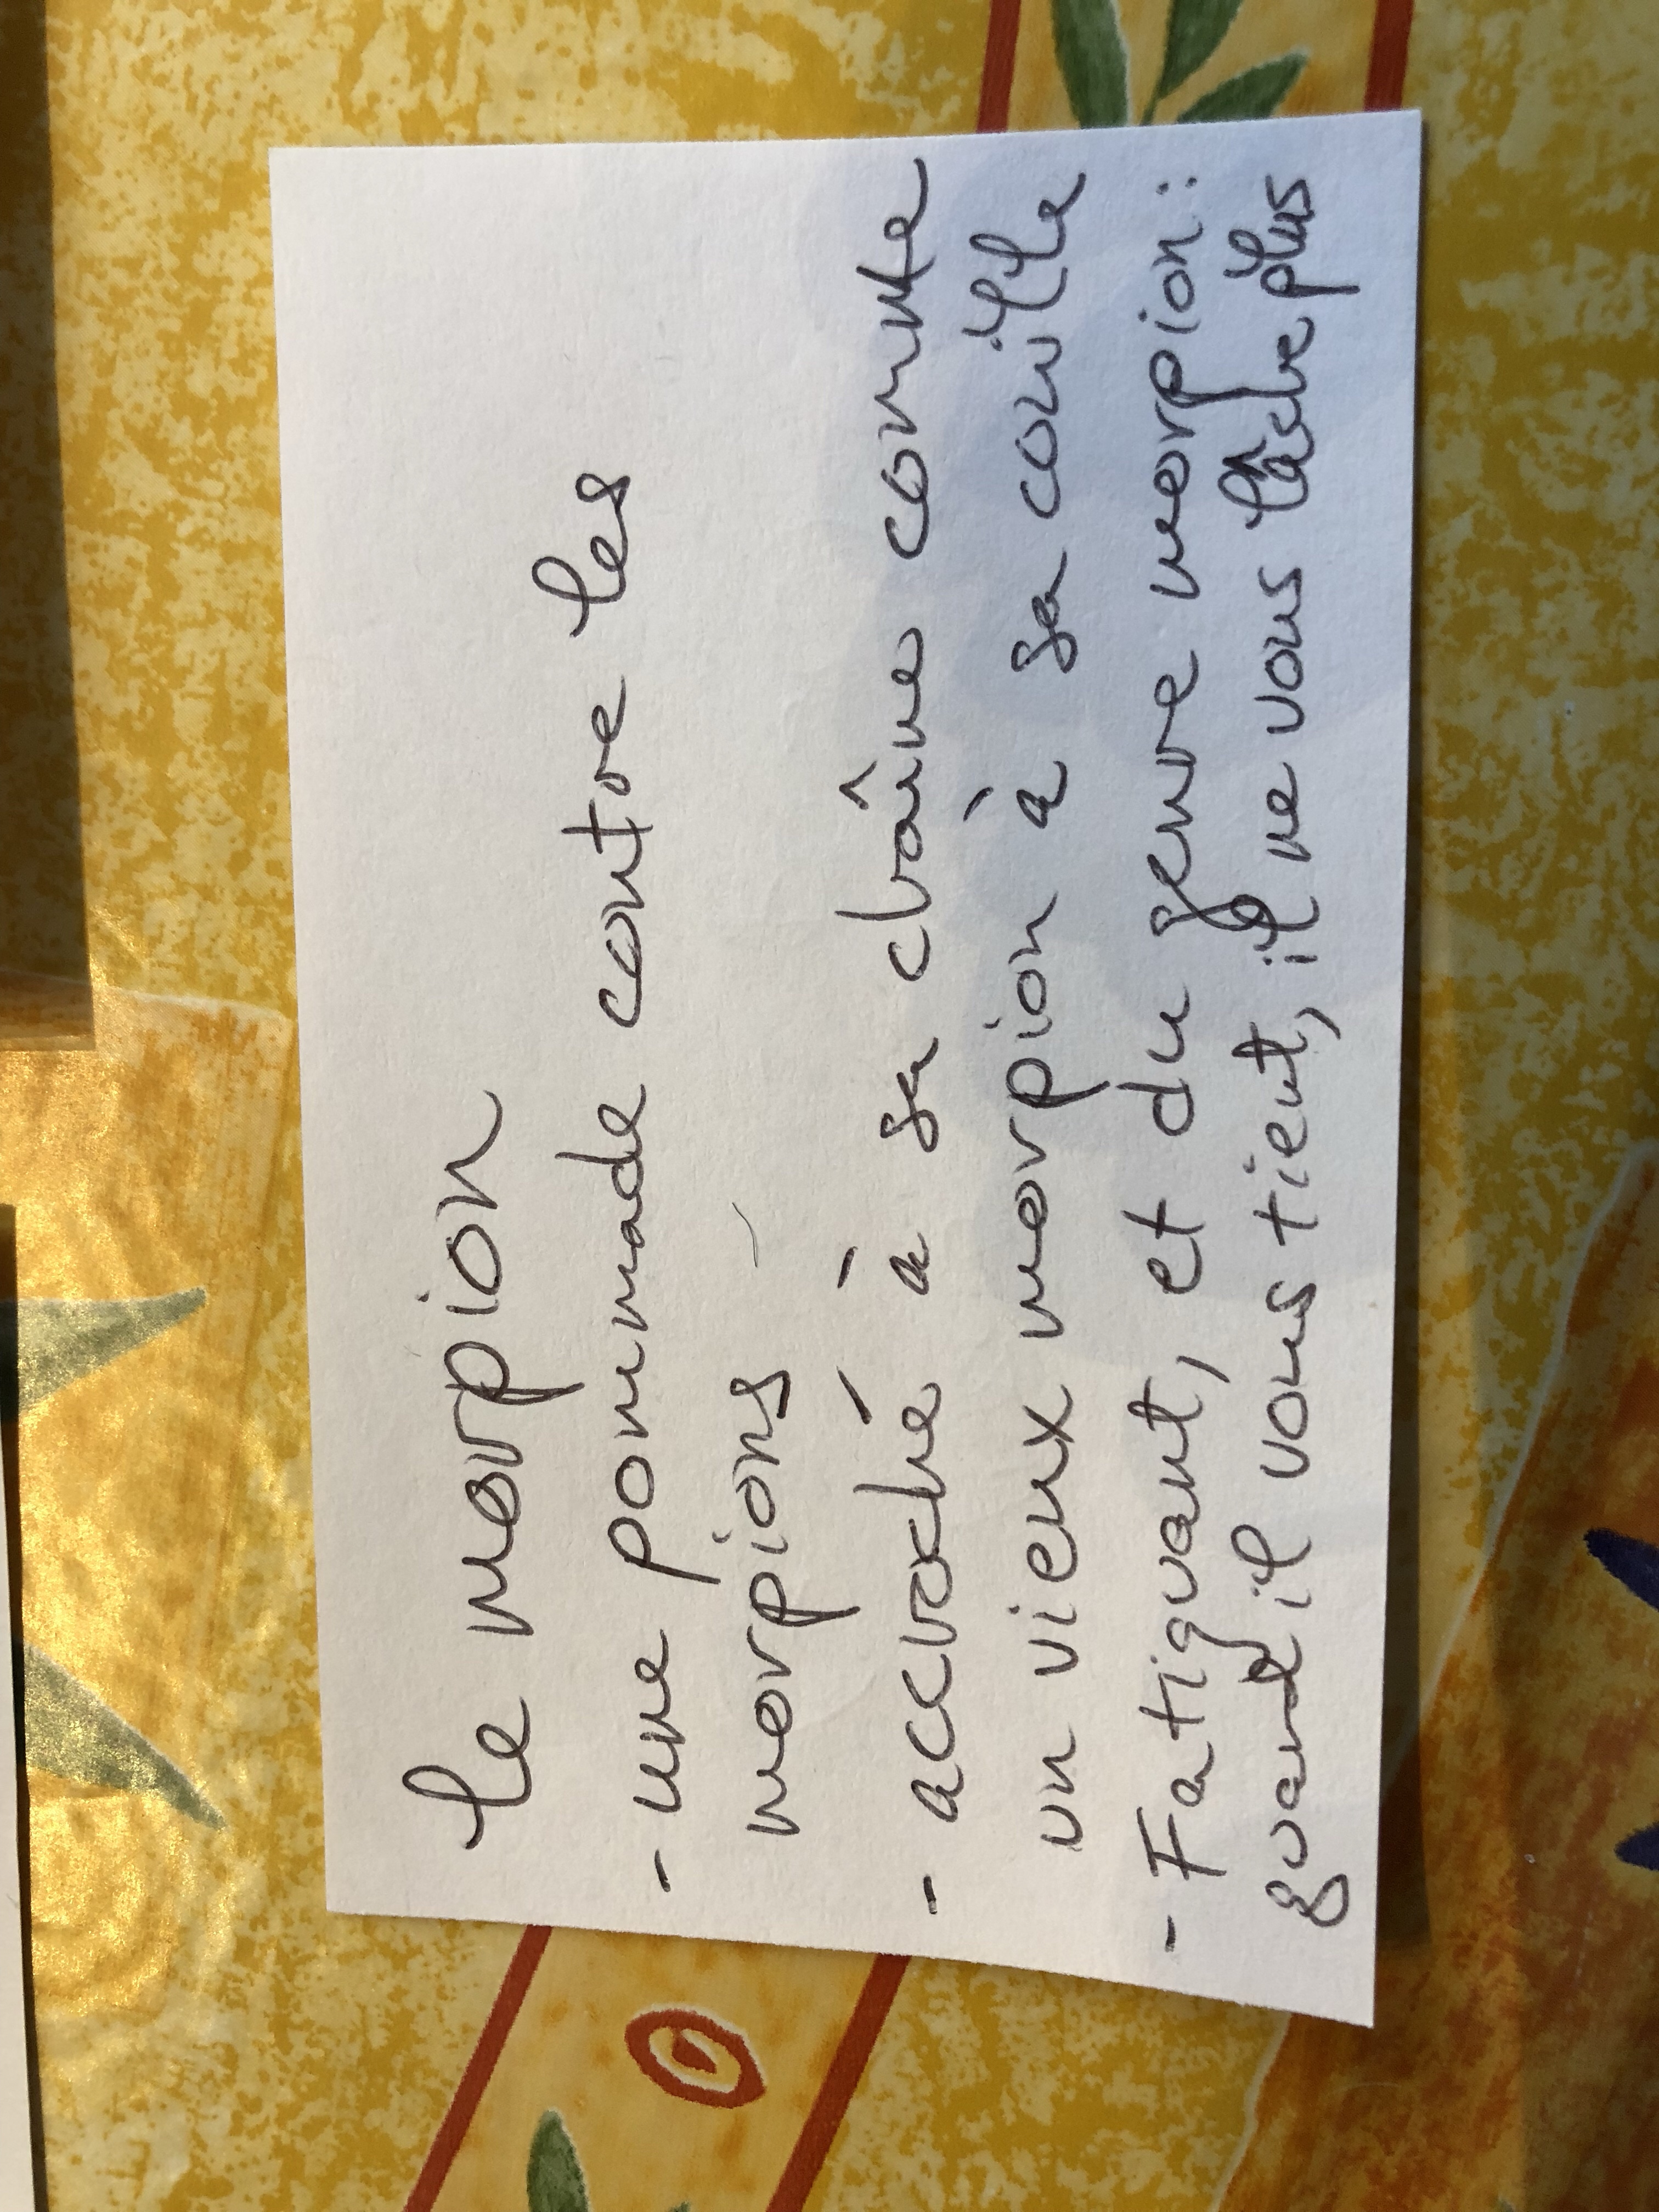 le morpion
- une pommade contre les
morpions
- accroché à sa chaîne comme
un vieux morpion à sa couille
- Fatiguant, et du genre morpion :
quand il vous tient, il ne vous lâche plus